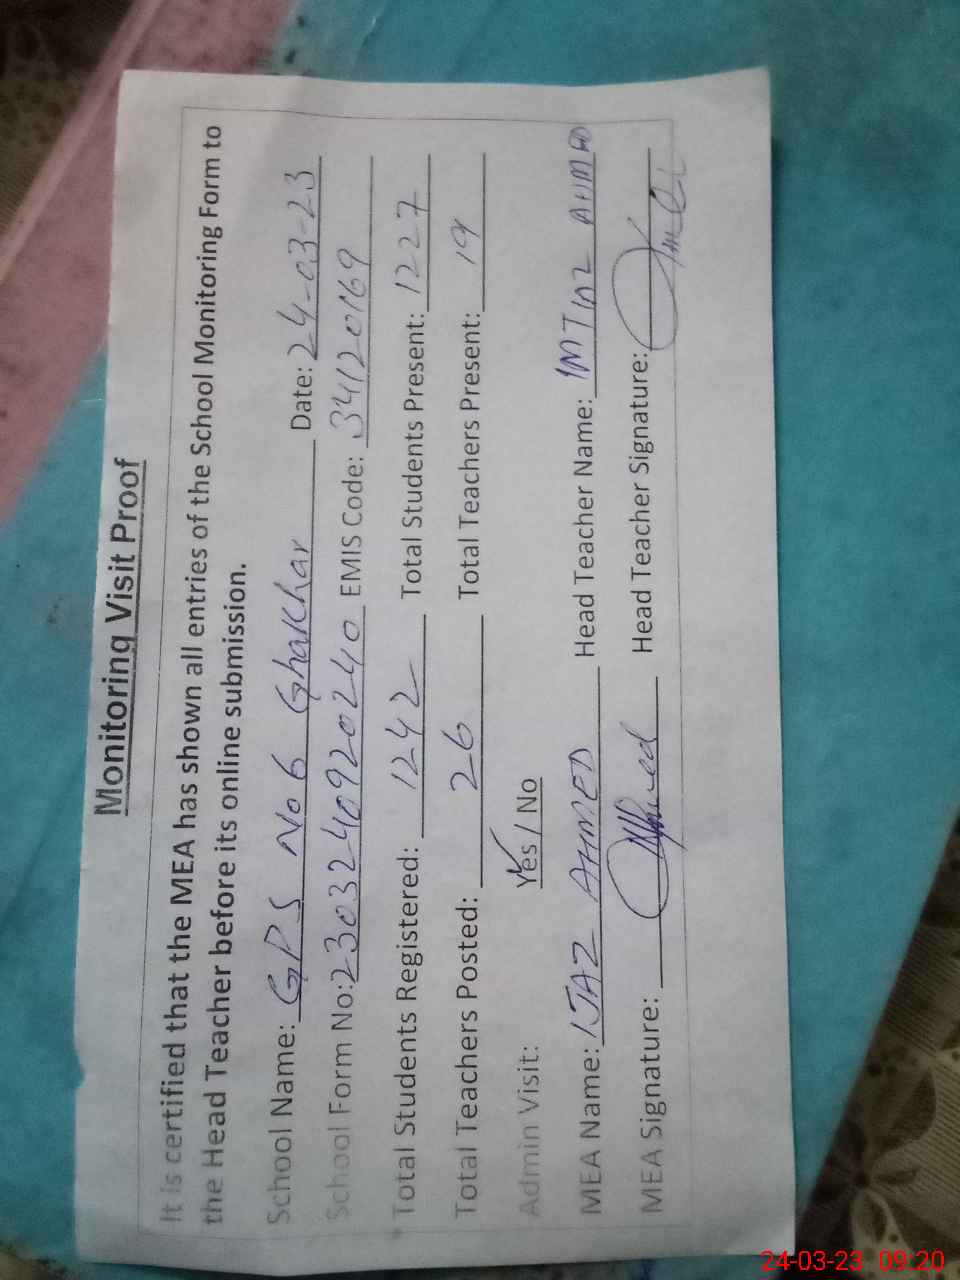 Monitoring Visit Proof
It is certified that the MEA has shown all entries of the School Monitoring Form to
the Head Teacher before its online submission.
School Name: GPS No 6 Ghakhar Date: 24-03-23
School Form No: 230324092020240 EMIS Code: 34120169
Total Students Registered: 1242 Total Students Present: 1227
Total Teachers Posted: 26 Total Teachers Present: 19
Admin Visit: Yes / No
MEA Name: IJAZ AHMED Head Teacher Name: IMTIAZ AHMAD
MEA Signature: Ahmed Head Teacher Signature:
24-03-23 09:20